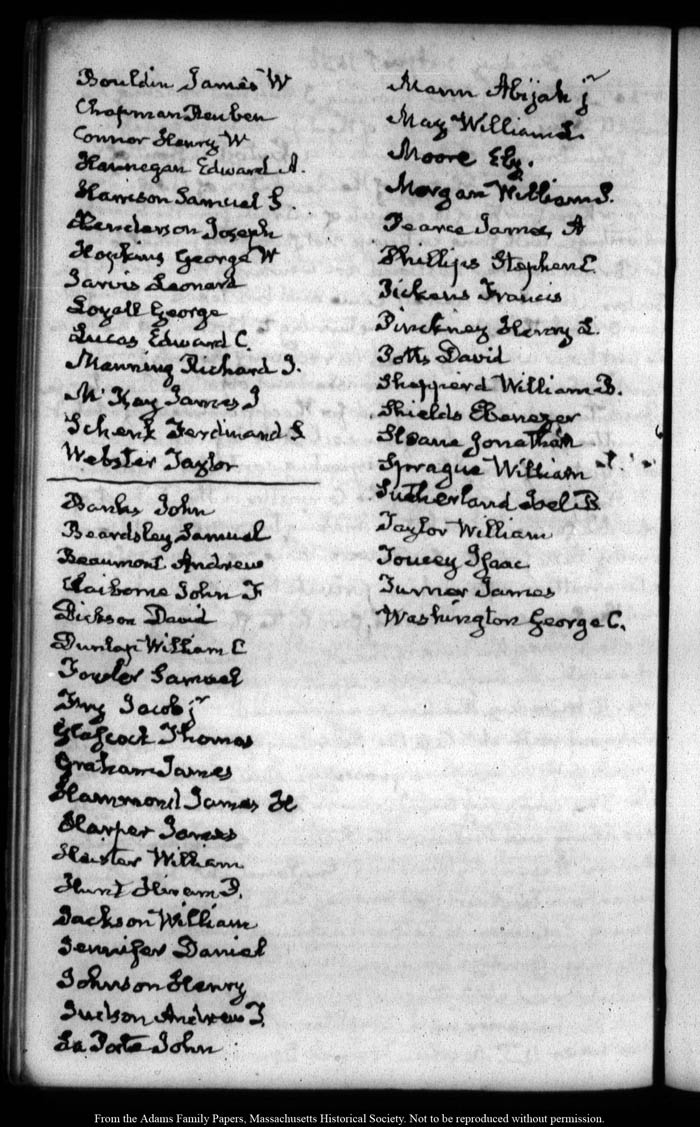 Bouldin James W
Chapman Reuben
Connor Henry W
Hannegan Edward A.
Harrison Samuel S.
Henderson Joseph
Hopkins George W
Jarvis Leonard
Loyall George
Lucas Edward C.
Manning Richard J.
McKay James J
Schenk Ferdinand S
Webster Taylor
Banks John
Beardsley Samuel
Beaumont Andrew
Claiborne John F
Dickson David
Dunlap William C
Fowler Samuel
Fry Jacob jr
Glascock Thomas
Graham James
Hammond James H
Harper James
Haister William
Hunt Hiram P.
Jackson William
Jenifer Daniel
Johnson Henry
Judson Andrew T.
La Porte John
Mann Abijah jr
May William L.
Moore Ely.
Morgan William S.
Pearce James A
Phillips Stephen C
Pickens Francis
Pinckney Henry L.
Potts David
Shepperd William B.
Shields Ebenezer
Sloane Jonathan
Sprague William
Sutherland Joel B
Taylor William
Toucey Isaac
Turner James
Washington George C.
From the Adams Family Papers, Massachusetts Historical Society. Not to be reproduced without permission.